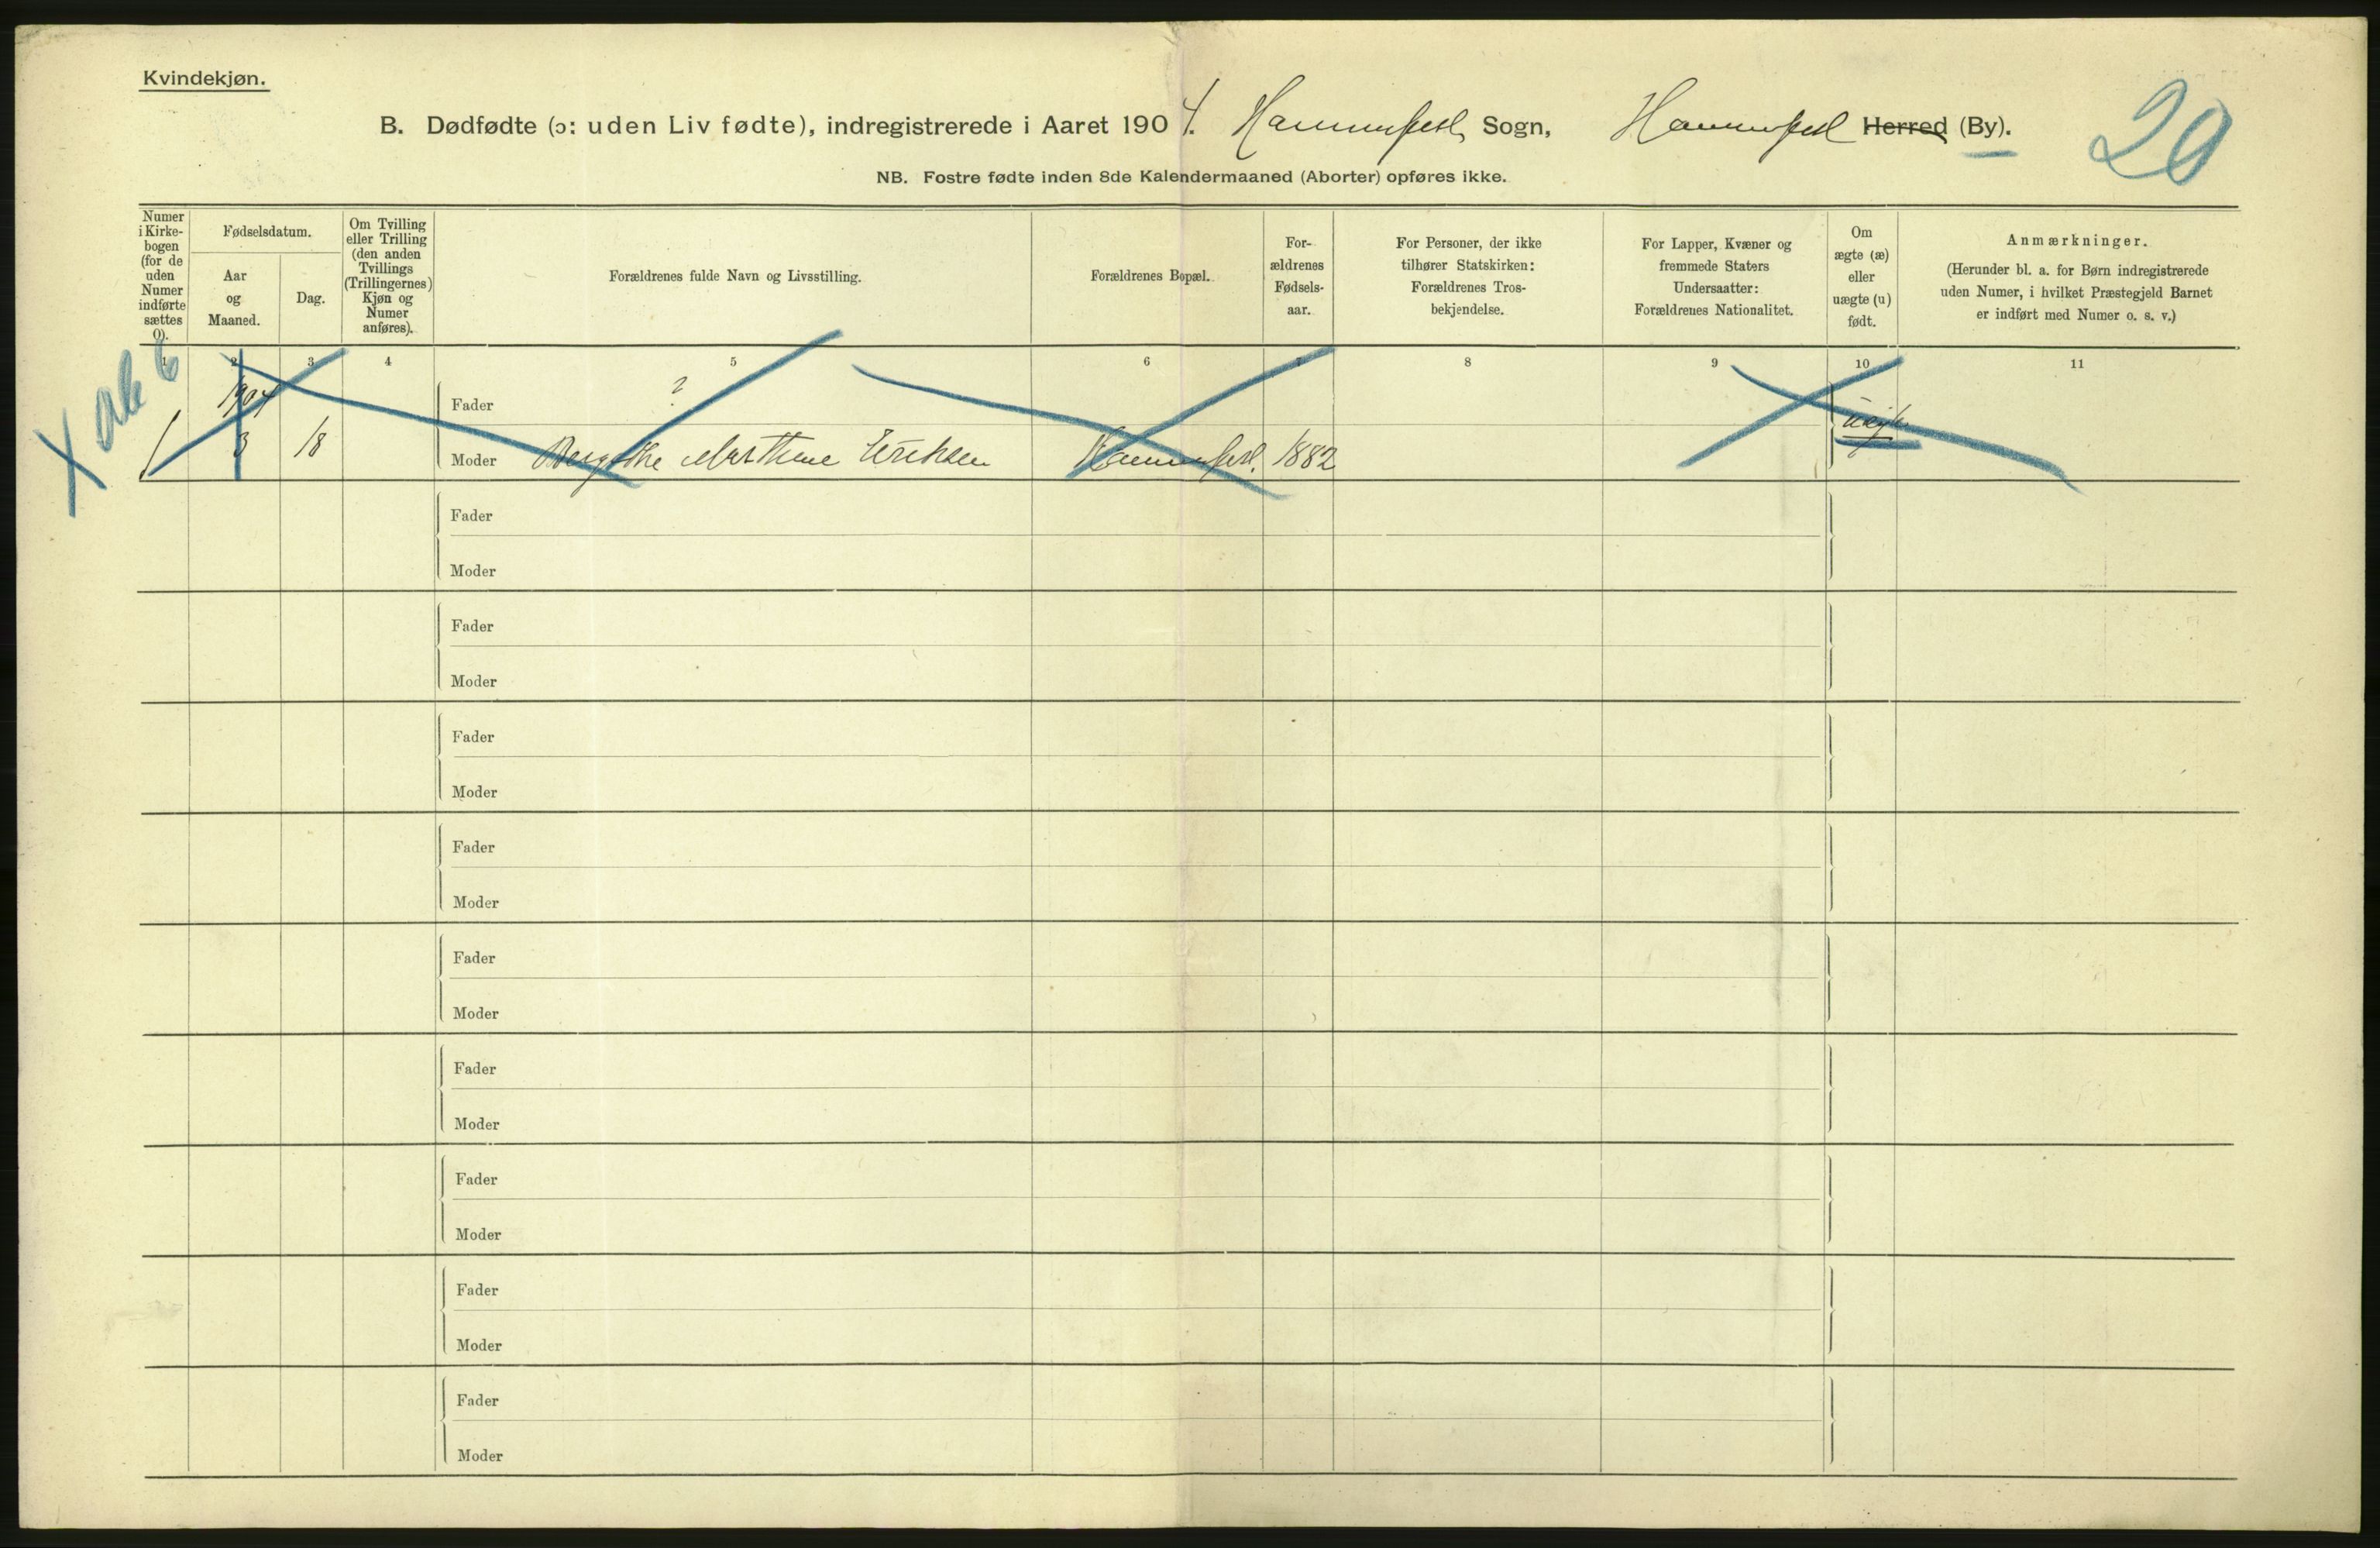 Kvindekjøn.
B. Dødfødte (ɔ: uden Liv fødte), indregistrerede i Aaret 1904. Hammerfest Sogn, Hammerfest Herred (By).
20
NB. Fostre fødte inden 8de Kalendermaaned (Aborter) opføres ikke.
Numer
i Kirke-
bogen
(for de
uden
Numer
indførte
sættes
0).
Fødselsdatum.
Aar
og
Maaned.
Dag.
Om Tvilling
eller Trilling
(den anden
Tvillings
(Trillingernes)
Kjøn og
Numer
anføres).
Forældrenes fulde Navn og Livsstilling.
Forældrenes Bopæl.
For-
ældrenes
Fødsels-
aar.
For Personer, der ikke
tilhører Statskirken:
Forældrenes Tros-
bekjendelse.
For Lapper, Kvæner og
fremmede Staters
Undersaatter:
Forældrenes Nationalitet.
Om
ægte (æ)
eller
uægte (u)
født.
Anmærkninger.
(Herunder bl. a. for Børn indregistrerede
uden Numer, i hvilket Præstegjeld Barnet
er indført med Numer o. s. v.)
1 2 3 4 5 6 7 8 9 10 11
1904
Fader ?
1 3 18 Moder Marthine Eriksen Hammerfest. 1882
Fader
Moder
Fader
Moder
Fader
Moder
Fader
Moder
Fader
Moder
Fader
Moder
Fader
Moder
Fader
Moder
Fader
Moder